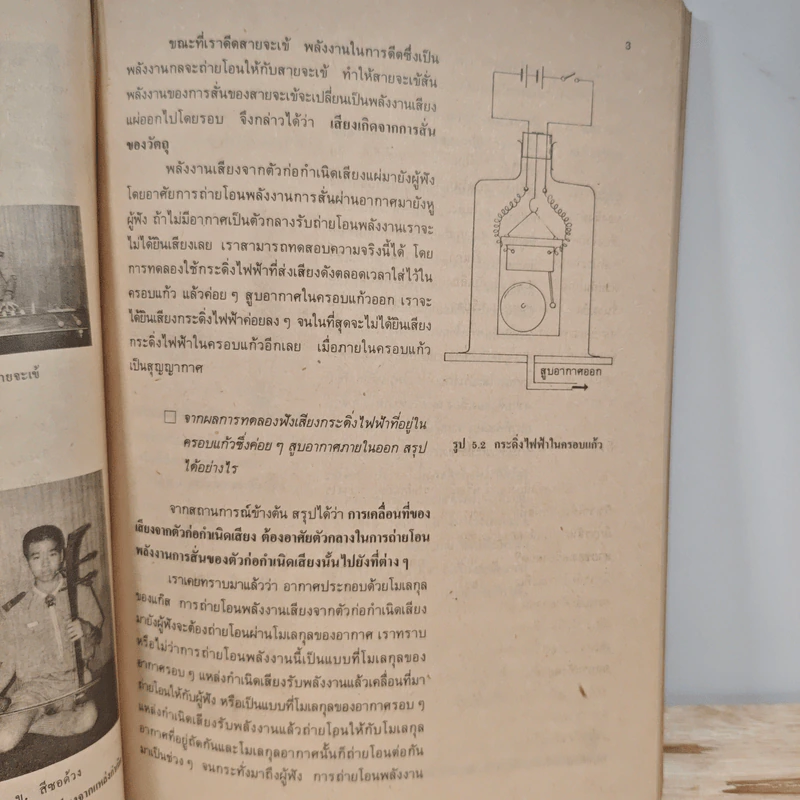 3
ขณะที่เราดีดสายจะเข้ พลังงานในการดีดซึ่งเป็น
พลังงานกลจะถ่ายโอนให้กับสายจะเข้ ทำให้สายจะเข้สั่น
พลังงานของการสั่นของสายจะเข้จะเปลี่ยนเป็นพลังงานเสียง
แผ่ออกไปโดยรอบ จึงกล่าวได้ว่า เสียงเกิดจากการสั่น
ของวัตถุ
พลังงานเสียงจากตัวก่อกำเนิดเสียงแผ่มายังผู้ฟัง
โดยอาศัยการถ่ายโอนพลังงานการสั่นผ่านอากาศมายังหู
ผู้ฟัง ถ้าไม่มีอากาศเป็นตัวกลางรับถ่ายโอนพลังงานเราจะ
ไม่ได้ยินเสียงเลย เราสามารถทดสอบความจริงนี้ได้ โดย
การทดลองใช้กระดิ่งไฟฟ้าที่ส่งเสียงดังตลอดเวลาใส่ไว้ใน
ครอบแก้ว แล้วค่อย ๆ สูบอากาศในครอบแก้วออก เราจะ
ได้ยินเสียงกระดิ่งไฟฟ้าค่อยลง ๆ จนในที่สุดจะไม่ได้ยินเสียง
กระดิ่งไฟฟ้าในครอบแก้วอีกเลย เมื่อภายในครอบแก้ว
เป็นสุญญากาศ
จากผลการทดลองฟังเสียงกระดิ่งไฟฟ้าที่อยู่ใน
ครอบแก้วซึ่งค่อย ๆ สูบอากาศภายในออก สรุป
ได้อย่างไร
จากสถานการณ์ข้างต้น สรุปได้ว่า การเคลื่อนที่ของ
เสียงจากตัวก่อกำเนิดเสียง ต้องอาศัยตัวกลางในการถ่ายโอน
พลังงานการสั่นของตัวก่อกำเนิดเสียงนั้นไปยังที่ต่าง ๆ
เราเคยทราบมาแล้วว่า อากาศประกอบด้วยโมเลกุล
ของแก๊ส การถ่ายโอนพลังงานเสียงจากตัวก่อกำเนิดเสียง
มายังผู้ฟังจะต้องถ่ายโอนผ่านโมเลกุลของอากาศ เราทราบ
หรือไม่ว่าการถ่ายโอนพลังงานนี้เป็นแบบที่โมเลกุลของ
อากาศรอบ ๆ แหล่งกำเนิดเสียงรับพลังงานแล้วเคลื่อนที่มา
ถ่ายโอนให้กับผู้ฟัง หรือเป็นแบบที่โมเลกุลของอากาศรอบ ๆ
แหล่งกำเนิดเสียงรับพลังงานแล้วถ่ายโอนให้กับโมเลกุล
อากาศที่อยู่ถัดกันและโมเลกุลอากาศนั้นก็ถ่ายโอนต่อกัน
มาเป็นช่วง ๆ จนกระทั่งมาถึงผู้ฟัง การถ่ายโอนพลังงาน
สูบอากาศออก
รูป 5.2 กระดิ่งไฟฟ้าในครอบแก้ว
ายจะเข้
สีซอด้วง